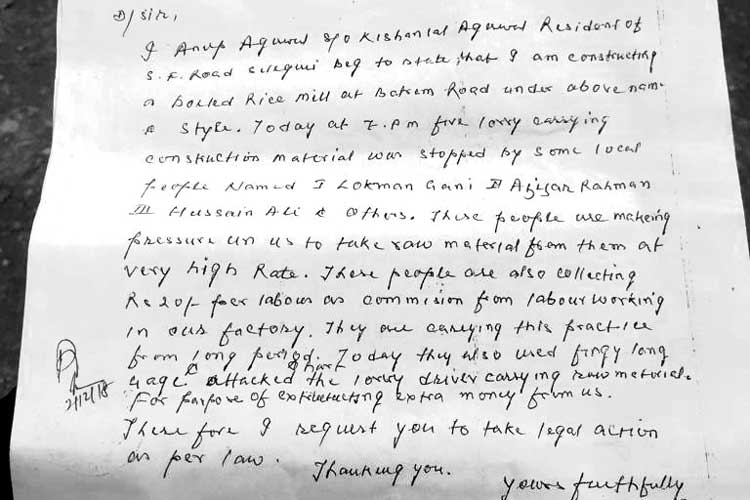 D/Sir,
I Anup Agarwal S/o Kishanlal Agarwal Resident of
S.F. Road Siliguri beg to state that I am constructing
a boiled Rice Mill at Road under above name
& Style. Today at 7. Pm five lorry carrying
construction material was stopped by some local
people Named I Lokman Gani II Azizar Rahman
III Hussain Ali & Others. These people are makeing
pressure un us to take raw material from them at
very high Rate. These people are also collecting
Rs 20/- per labour as commision from labour working
in our factory. They are carrying this practice
from long period. Today they also used long
& the lorry driver carrying raw material.
For parpose of extra money from us.
There fore I request you to take legal action
as per law. Thanking you.
Yours faithfully
2/12/18